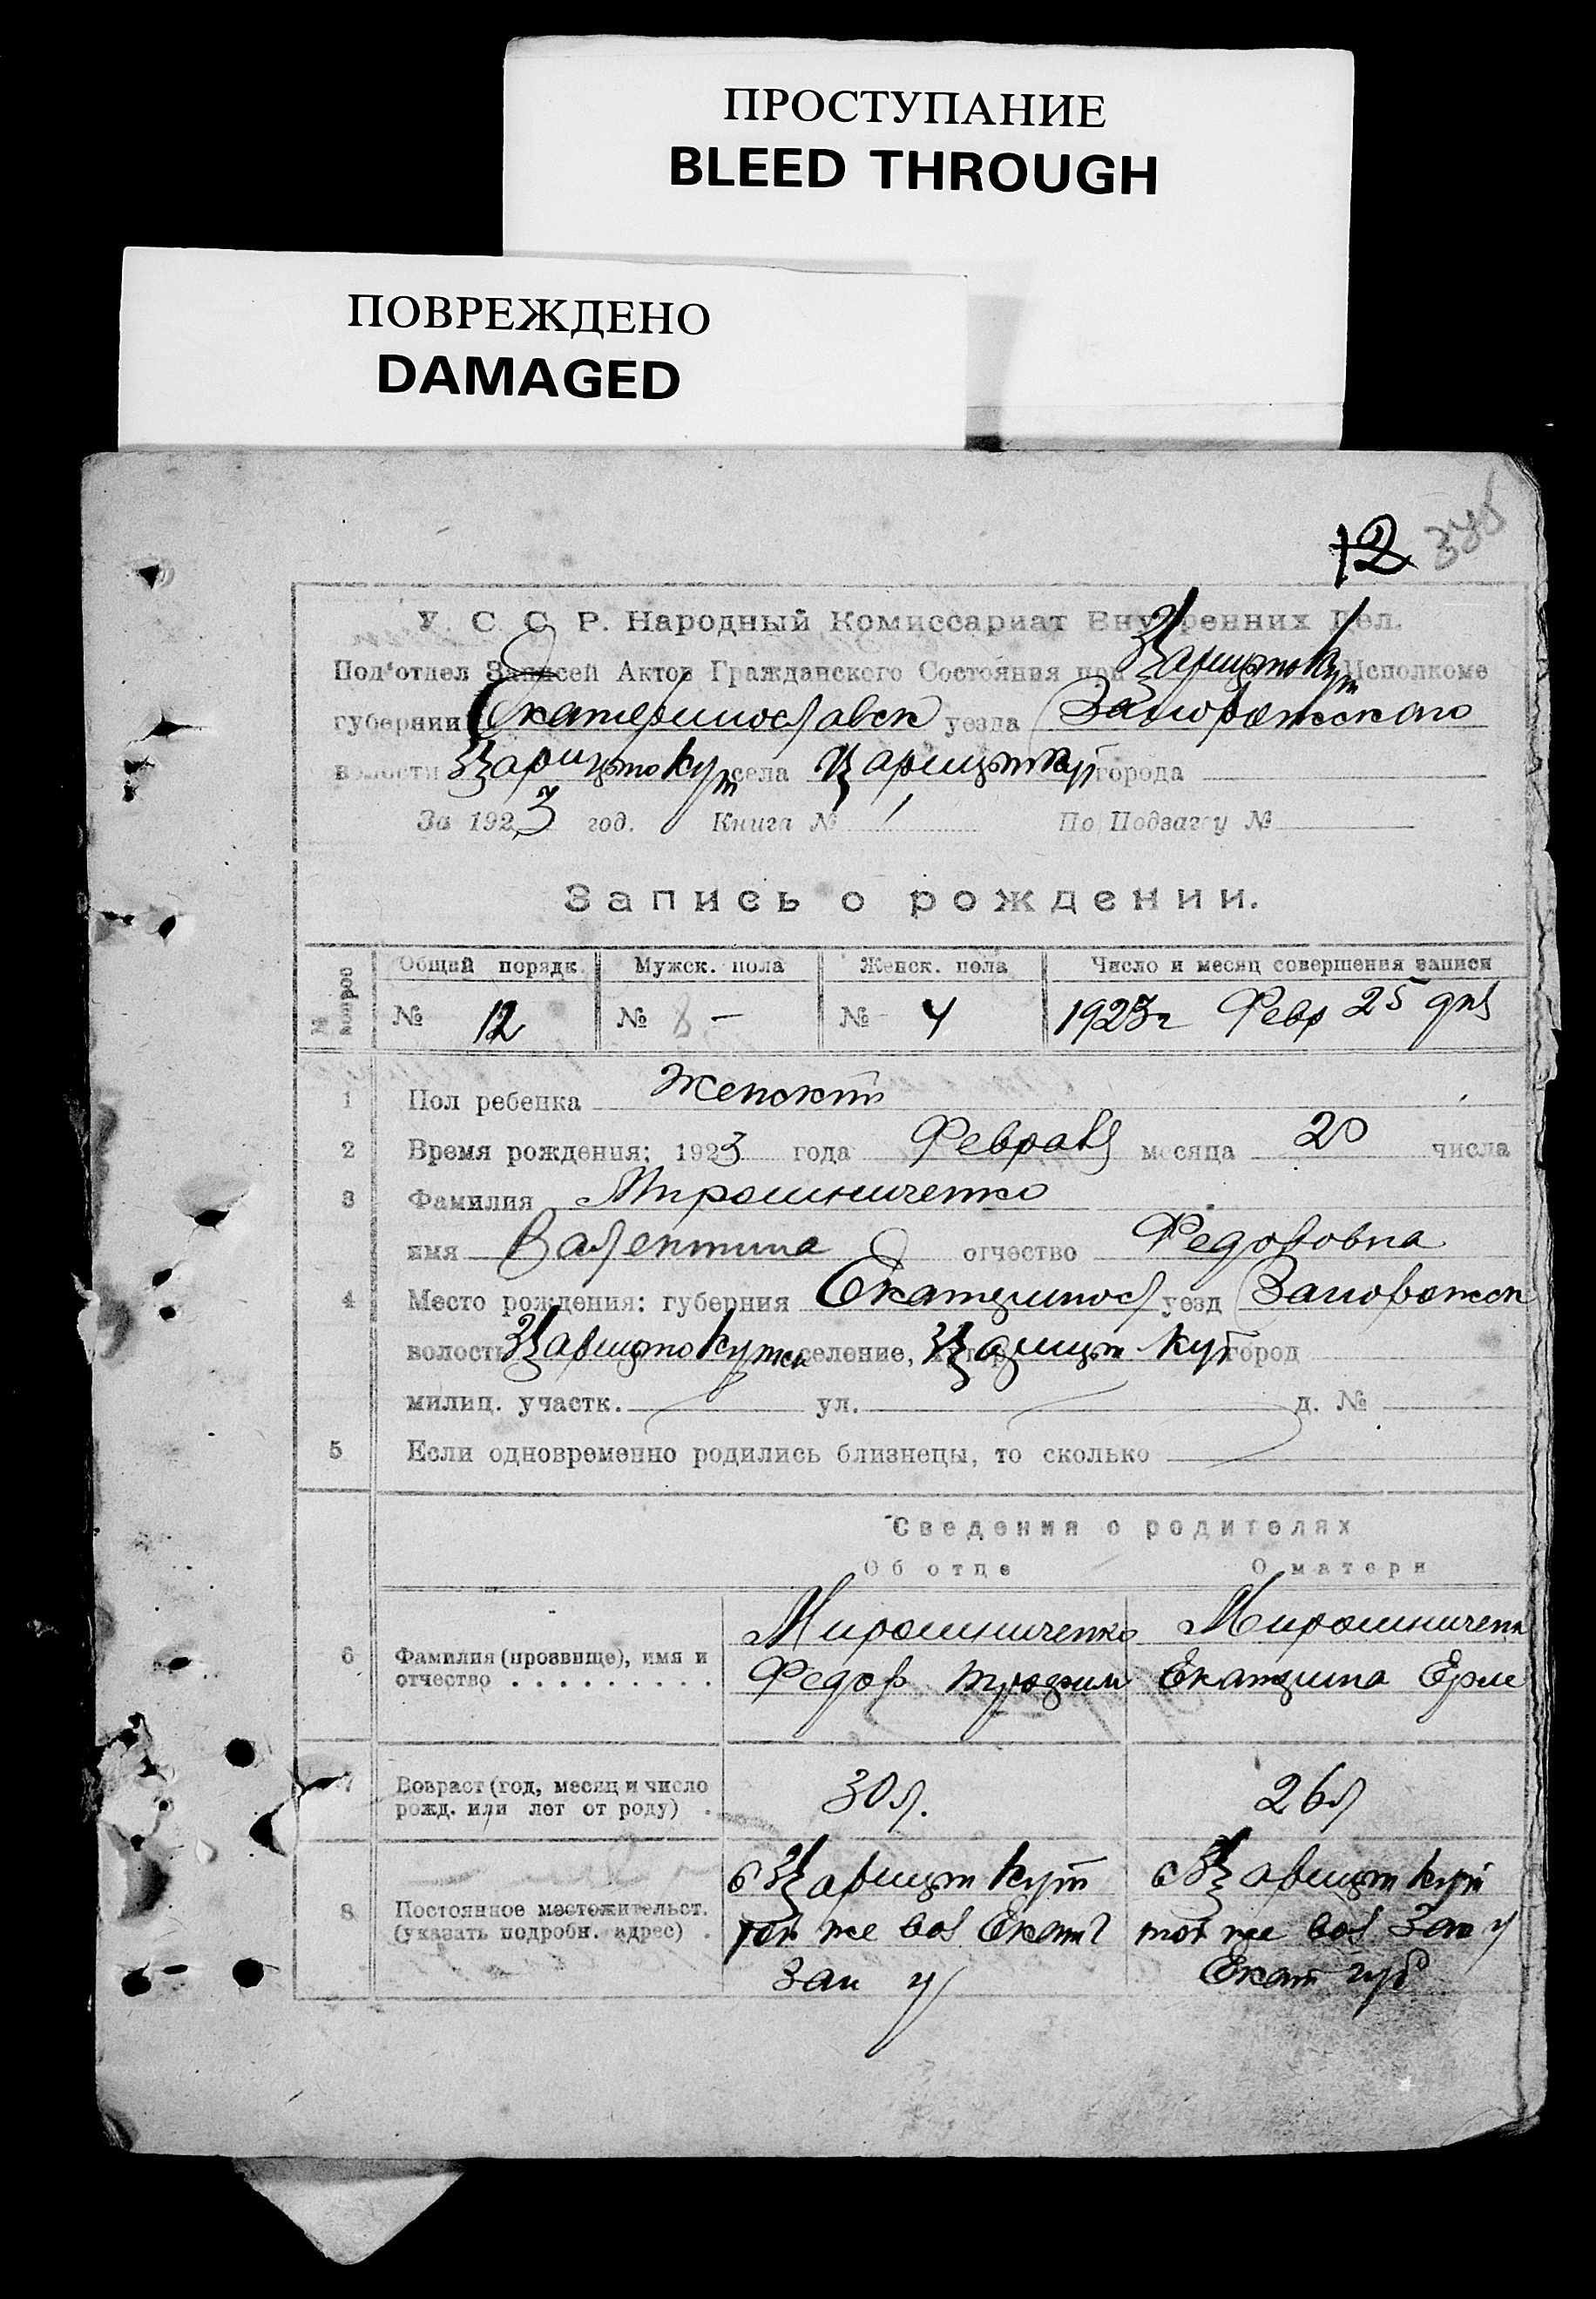 ПРОСТУПАНИЕ
BLEED THROUGH
ПОВРЕЖДЕНО
DAMAGED
12
У. С. С. Р. Народный Комиссариат Внутренних Дел.
Под'отдел Записей Актов Гражданского Состояния при Царицынокут Исполкоме
губернии Екатеринославск уезда Запорожского
волости Царицынокут села Царицынкут города
За 1923 год. Книга № 1 По Подзагсу №
Запись о рождении.
№ вопрос Общий порядк. Мужск. пола Женск. пола Число и месяц совершения записи
№ 12 № 8 — № 4 1923г Февр 25 дня
1 Пол ребенка Женский
2 Время рождения: 1923 года Февраля месяца 20 числа
3 Фамилия Мирошниченко
имя Валентина отчество Федоровна
4 Место рождения: губерния Екатеринос уезд Запорожск
волость селение, Царицын Кут город
милиц. участк. ул. д. №
5 Если одновременно родились близнецы, то сколько
Сведения о родителях
Об отце О матери
Мирошниченко Мирошниченк
6 Фамилия (прозвище), имя и отчество Федор Екатерина
7 Возраст (год, месяц и число рожд. или лет от роду) 30 л. 26 л
8 Постоянное местожительст. (указать подробн. адрес)
с Царицын Кут с Царицын Кут
той же вол Екат г той же вол Зап у
Зап у Екат губ